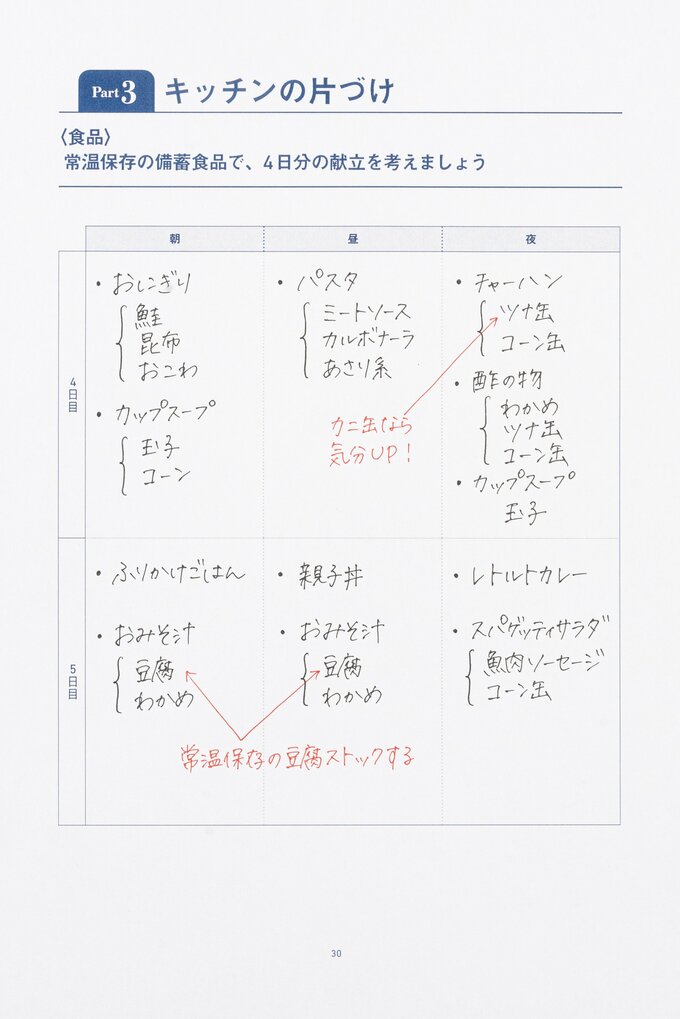 Part3 キッチンの片づけ
〈食品〉
常温保存の備蓄食品で、4日分の献立を考えましょう
朝 昼 夜
4日目
・おにぎり
鮭
昆布
おこわ
・カップスープ
玉子
コーン
・パスタ
ミートソース
カルボナーラ
あさり系
カニ缶なら
気分UP!
・チャーハン
ツナ缶
コーン缶
・酢の物
わかめ
ツナ缶
コーン缶
・カップスープ
玉子
5日目
・ふりかけごはん
・おみそ汁
豆腐
わかめ
・親子丼
・おみそ汁
豆腐
わかめ
常温保存の豆腐ストックする
・レトルトカレー
・スパゲッティサラダ
魚肉ソーセージ
コーン缶
30